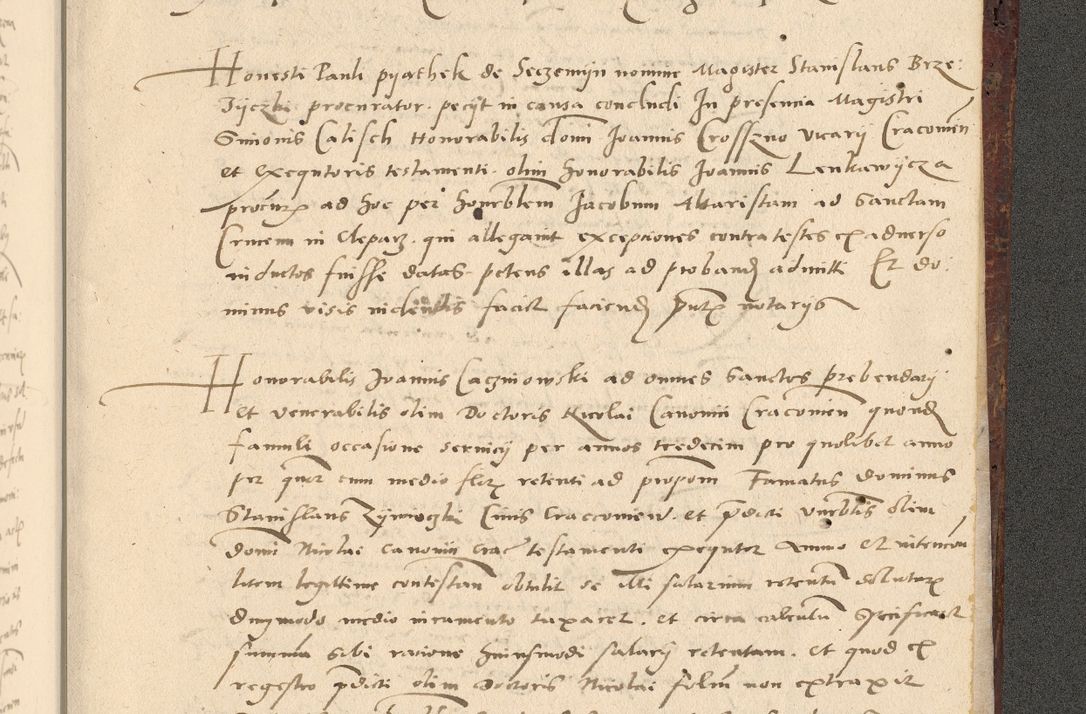 Honesti Pauli pyathek de Seczemijn nomine Magister Stanislaus Brze-
zijczki procurator. pecijt in causa concludi In presencia Magistri
Simonis Calisch Honorabilis domi Joannis Crosszno vicarij Cracovien
et Exequtoris testamenti olim honorabilis Joannis
procur ad hoc per honorblem Jacobum Altaristam ad Sanctam
Crucem in Cleparz. qui allegavit excepciones contra testes ex adverso
inductos fuisse datas petens illas ad proband admitti Et do-
minus visis videndis facit faciend notarijs
Honorabilis Joannis Laczinowski ad omnes Sanctos prebendarij
et venerabilis olim Doctoris Nicolai Canonici Cracovien quond
famuli occasione servicij per annos tredecim pro quolibet anno
per quor cum medio flor retenti ad propom Famatus dominus
Stanislaus Zijwieczki Civis Craccovien. et predicti venrblis olim
domi Nicolai Canonici Crac testamenti exequtor Animo et intencion
litem legittime contestan obtulit se illi salarium retentum soluturum
dummodo medio iuramento taxaret. et circa calculum Specificaret
summam sibi racione huiusmodi salarij retentam. et quod ex
regestro predicti olim Doctoris Nicolai solum non extraxit